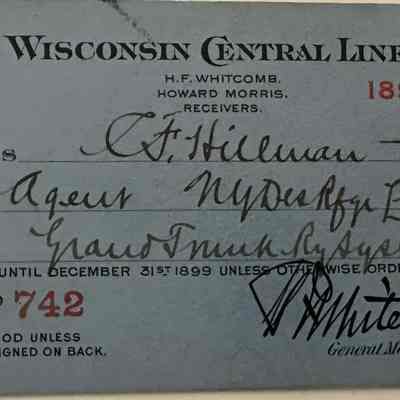 WISCONSIN CENTRAL LINE
H.F. WHITCOMB.
HOWARD MORRIS.
RECEIVERS.
189
S C F. Hillman
Agent NYDesRfgr B
Grand Trunk Ry Sys
UNTIL DECEMBER 31ST 1899 UNLESS OTHERWISE ORDE
742
OOD UNLESS
IGNED ON BACK.
General Ma